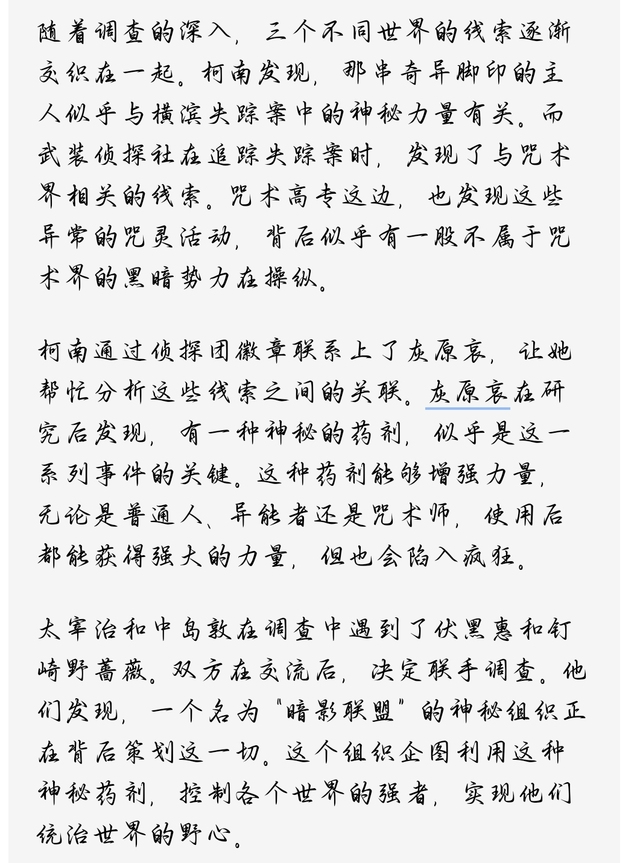 随着调查的深入，三个不同世界的线索逐渐
交织在一起。柯南发现，那串奇异脚印的主
人似乎与横滨失踪案中的神秘力量有关。而
武装侦探社在追踪失踪案时，发现了与咒术
界相关的线索。咒术高专这边，也发现这些
异常的咒灵活动，背后似乎有一股不属于咒
术界的黑暗势力在操纵。
柯南通过侦探团徽章联系上了灰原哀，让她
帮忙分析这些线索之间的关联。灰原哀在研
究后发现，有一种神秘的药剂，似乎是这一
系列事件的关键。这种药剂能够增强力量，
无论是普通人、异能者还是咒术师，使用后
都能获得强大的力量，但也会陷入疯狂。
太宰治和中岛敦在调查中遇到了伏黑惠和钉
崎野蔷薇。双方在交流后，决定联手调查。他
们发现，一个名为“暗影联盟”的神秘组织正
在背后策划这一切。这个组织企图利用这种
神秘药剂，控制各个世界的强者，实现他们
统治世界的野心。